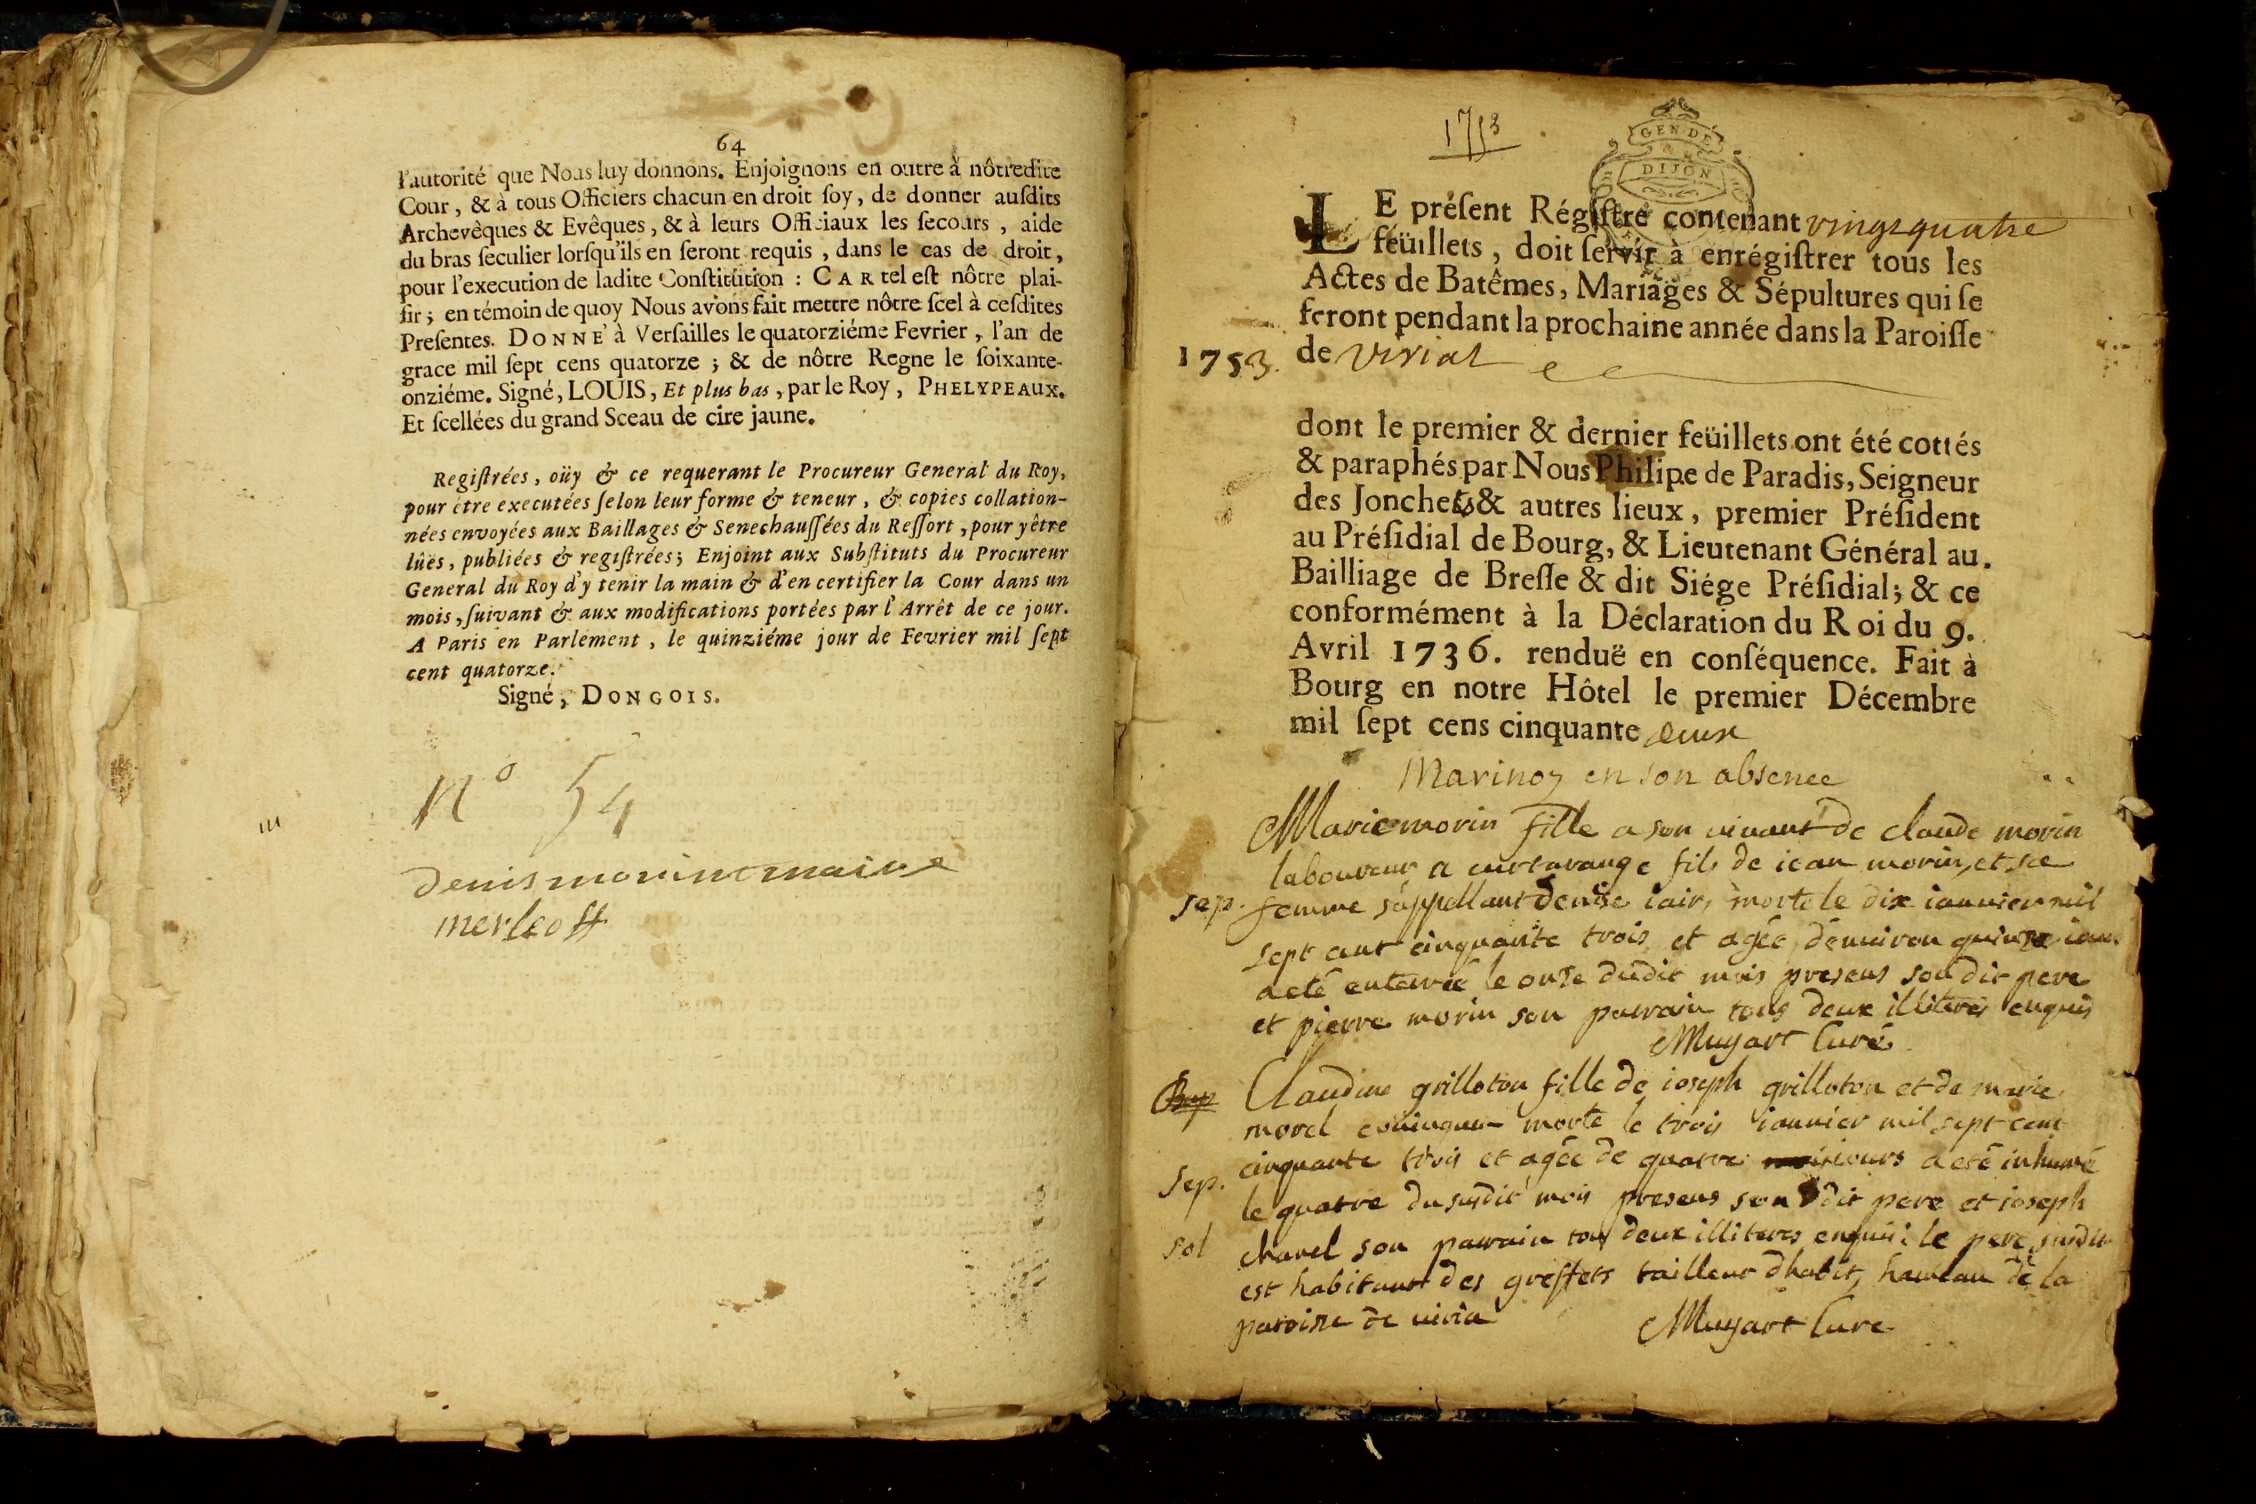 64
l'autorité que Nous luy donnons. Enjoignons en outre à nôtredite
Cour, & à tous Officiers chacun en droit ſoy, de donner auſdits
Archevêques & Evêques, & à leurs Officiaux les ſecours, aide
du bras ſeculier lorſqu'ils en ſeront requis, dans le cas de droit,
pour l'execution de ladite Conſtitution : CAR tel eſt nôtre plai-
ſir ; en témoin de quoy Nous avons fait mettre nôtre ſcel à ceſdites
Preſentes. DONNE' à Verſailles le quatorziéme Fevrier, l'an de
grace mil ſept cens quatorze ; & de nôtre Regne le ſoixante-
onziéme. Signé, LOUIS, Et plus bas, par le Roy, PHELYPEAUX.
Et ſcellées du grand Sceau de cire jaune.
Regiſtrées, oüy & ce requerant le Procureur General du Roy,
pour être executées ſelon leur forme & teneur, & copies collation-
nées envoyées aux Baillages & Senechauſſées du Reſſort, pour y être
lûës, publiées & regiſtrées; Enjoint aux Subſtituts du Procureur
General du Roy d'y tenir la main & d'en certifier la Cour dans un
mois, ſuivant & aux modifications portées par l'Arrêt de ce jour.
A Paris en Parlement, le quinziéme jour de Fevrier mil ſept
cent quatorze.
Signé, DONGOIS.
No 54
denis morin maire
1753
GEN DE
DIJON
LE préſent Régiſtre contenant vingt quatre
feüillets, doit ſervir à enrégiſtrer tous les
Actes de Batêmes, Mariages & Sépultures qui ſe
feront pendant la prochaine année dans la Paroiſſe
1753. de viriat
dont le premier & dernier feüillets ont été cottés
& paraphés par Nous Philipe de Paradis, Seigneur
des Jonchets & autres lieux, premier Préſident
au Préſidial de Bourg, & Lieutenant Général au
Bailliage de Breſſe & dit Siége Préſidial; & ce
conformément à la Déclaration du Roi du 9.
Avril 1736. renduë en conſéquence. Fait à
Bourg en notre Hôtel le premier Décembre
mil ſept cens cinquante deux
en son absence
Marie morin fille a son vivant de claude morin
laboureur a curtavange fils de iean morin, et sa
Sep. femme s'appellant denise morte le dix ianvier mil
sept cent cinquante trois et agée d'environ quinze
a eté enterrée le onze dudit mois presens son dit pere
et pierre morin son parrain tous deux illiteres enquis
Muyart Curé
Bap Claudine grilloton fille de ioseph grilloton et de marie
morel morte le trois ianvier mil sept cent
Sep. cinquante trois et agée de quatre iours a eté inhumé
le quatre du susdit mois presens son dit pere et ioseph
sol son parrain tous deux illiteres enquis : le pere susdit
est habitant des greffets tailleur d'habit, hameau de la
paroisse de viria
Muyart Curé